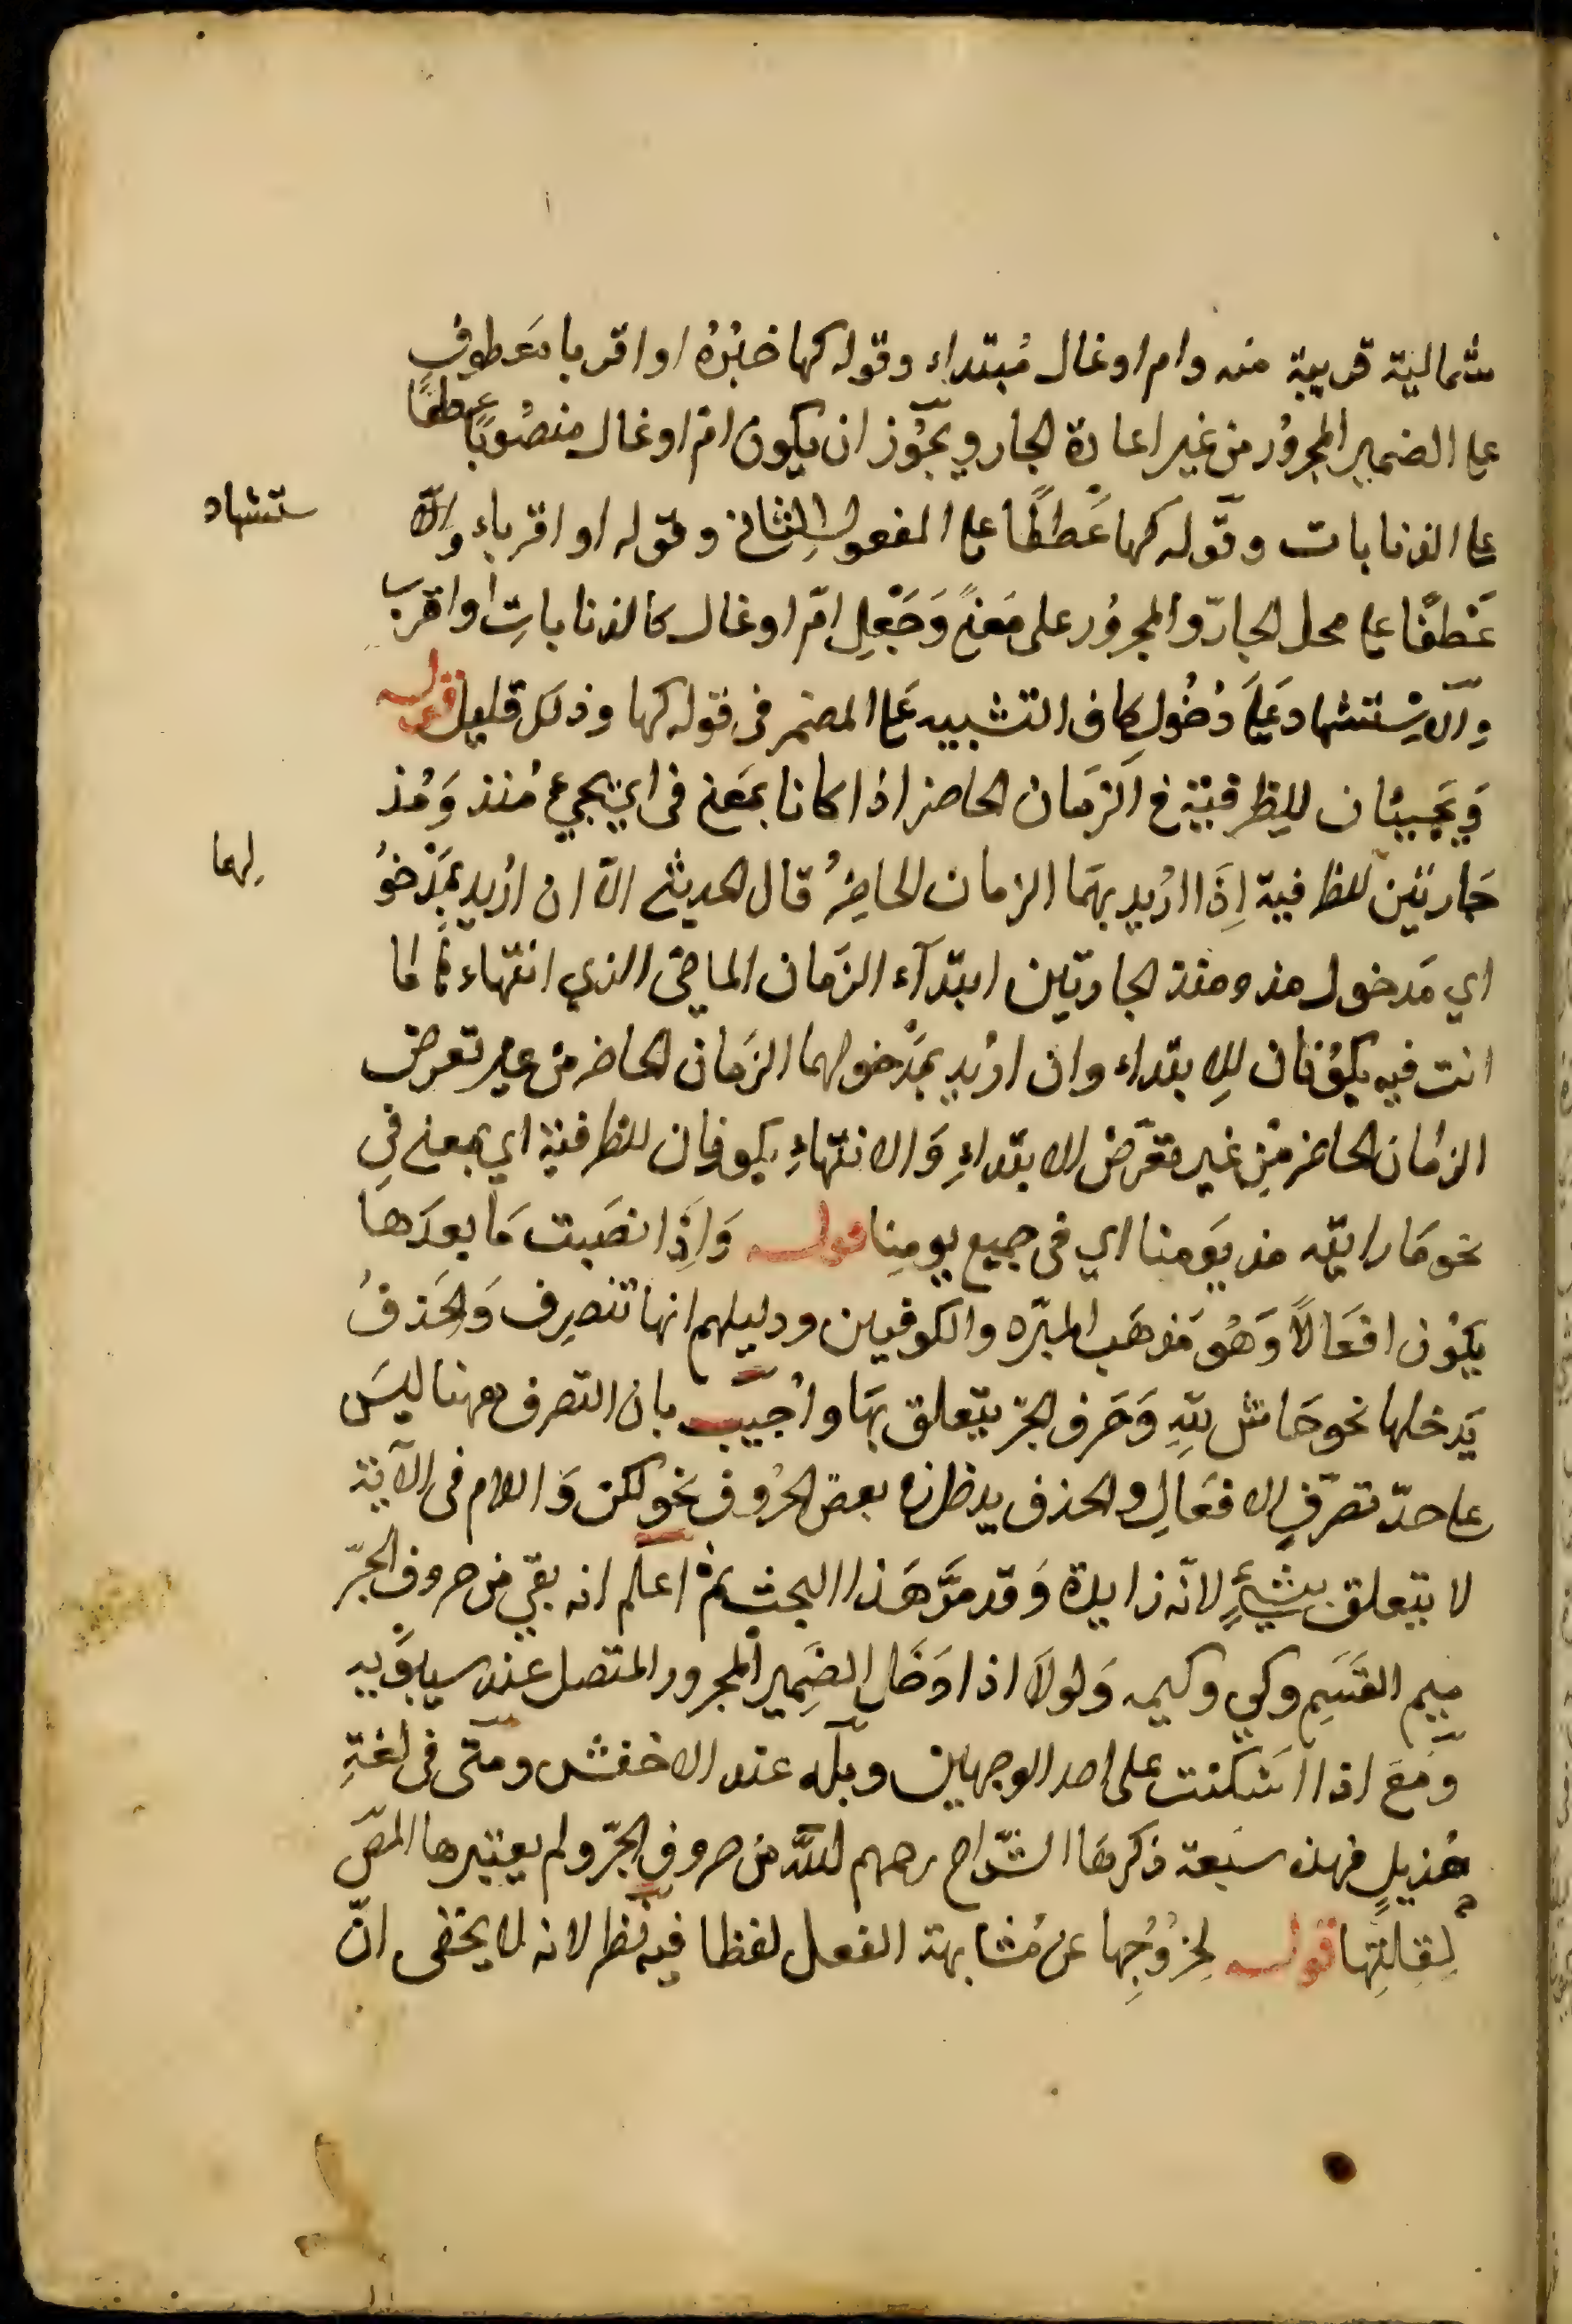 شمالية قريبة منه وام اوعال مُبتداء وقوله كها خبَرُهُ او اقربا معَطوف
على الضمير المجرُور من غير اعادة الجار ويجَوُز ان يكون امّ اوعال منصُوبًا عطفًا
على الذنابات وقوله كها عَطفًا على المفعول الثاني وقوله او اقرباء والا
ستشهاد
عَطفًا على محل الجارّ والمجرُور على مَعنى وَجَعْلِ امّ اوعال كالذناباتِ او اقرب
والاسْتشهاد عَلَى دُخُول كاف التشبيه عَلى المضمر في قوله كها وذلك قليل قوله
وَيَجيئان للظرفية في الزمَان الحاضر اذا كانا بمَعنى في اي يجيء مُنذ وَمُذ
جَارتين للظرفية اِذَا اُريد بهمَا الزمان الحاضرُ قال الحديثى الّا ان اُريد بمَدْخوُ
لهما
اي مَدخول مذ ومنذ الجارتين ابتدآء الزمَان الماضى الذي انتهاء
انت فيه يكوُنان للِابتداء وان اُريد بمَدْخولهما الزمَان الحاضر من غير تعرض
الزمَان الحاضر مِن غير تعَرّض الابتداءِ وَالانتهاءِ يكونان للظرفية اي بمعنى في
نحو مَا رايته مذ يَومنا اي في جميع يومِنا قوله وَاِذَا نصَبت مَا بعدَهَا
يكوُن افعَالًا وَهُو مَذهَب المبرّد والكوفيين ودليلهم انها تنصرِف وَالحَذفُ
يَدخلها نحو حَاش للهِ وَحَرف الجرّ يتعلق بهَا واُجيبَ بان التصرف ههنا ليسَ
على حدّ تصَرّفِ الافعَالِ والحذف يدخل بعض الحرُوف نحو لكن وَاللام في الآية
لا يتعلق بشيءٍ لانّه زايدة وَقد مرَّ هَذا البحث ثم اعلم انه بقي من حروف الجرّ
ميم القَسَمِ وكي وكيمه وَلولَا اذا دَخَل الضَمِير المجرور المتصل عند سيبوَيه
وَمَعَ اذا اسَكنت على احد الوجهين وبله عند الاخفش ومتى في لغةِ
هُذيلٍ فهذه سبعة ذكرهَا الشّراح رحمهم الله من حروف الجرّ ولم يعتبرها المصّ
لِقِلتِها قوله لِخرُوُجِها عن مُشابهة الفعل لفظا فيه نظر لانه لا يخفى انّ